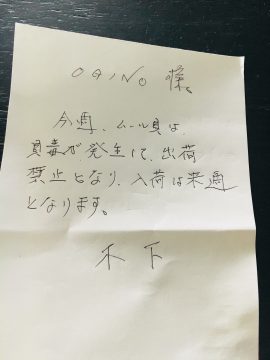 OGINO 様。
今週、ムール貝は、
貝毒が発生して、出荷
禁止となり、入荷は来週
となります。
木下